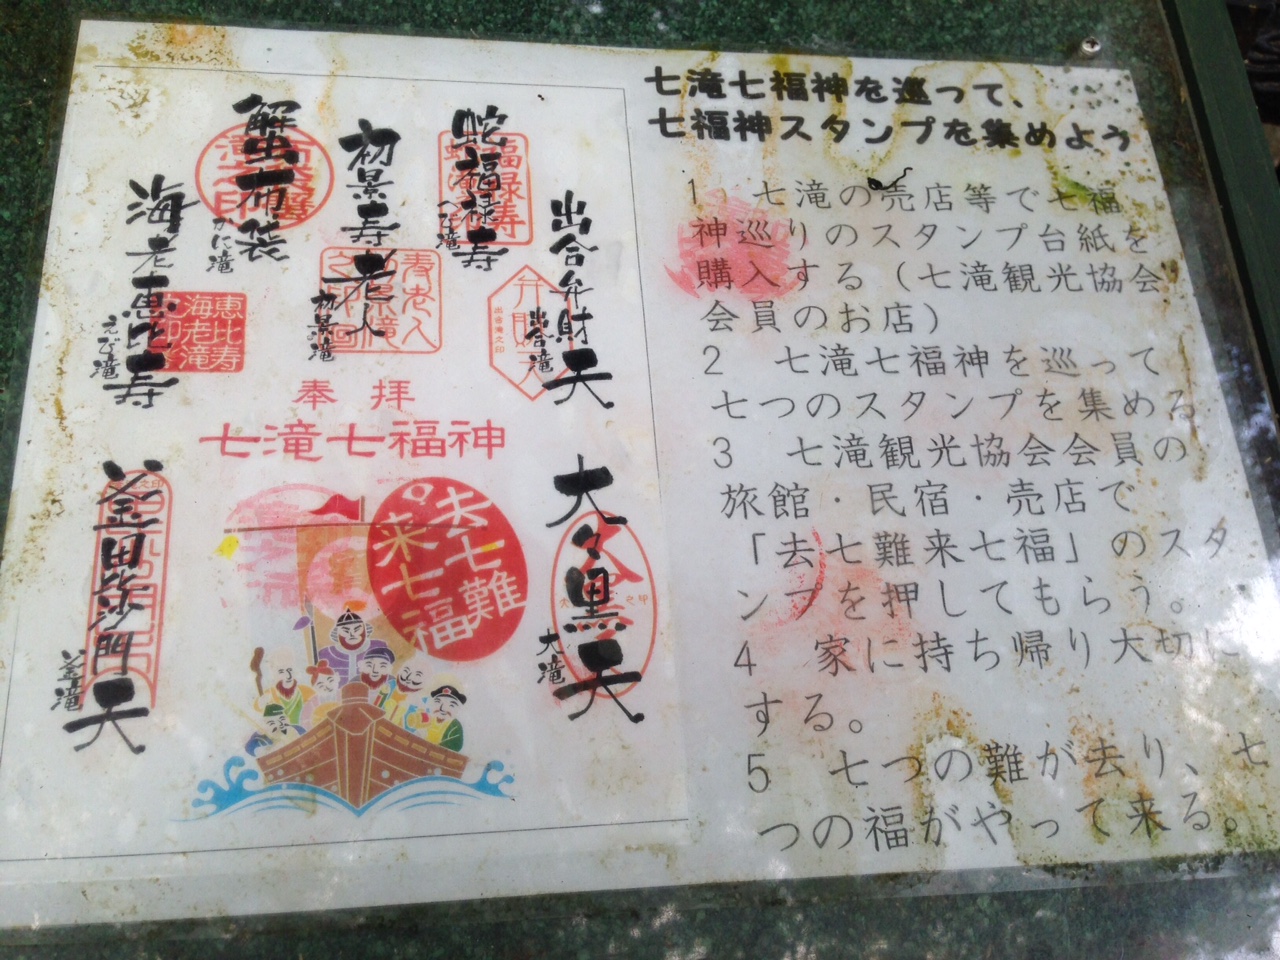 七滝七福神を巡って、
七福神スタンプを集めよう
1）七滝の売店等で七福
神巡りのスタンプ台紙を
購入する（七滝観光協会
会員のお店）
2　七滝七福神を巡って
七つのスタンプを集める
3　七滝観光協会会員の
旅館・民宿・売店で
「去七難来七福」のスタ
ンプを押してもらう。
4　家に持ち帰り大切に
する。
5　七つの難が去り、七
つの福がやって来る。
出合弁財天
出合滝
弁財天
出合滝之印
蛇福禄寿
へび滝
福禄寿
初景寿老人
初景滝
寿老人
蟹布袋
かに滝
海老恵比寿
えび滝
恵比寿
海老滝
奉拝
七滝七福神
大々黒天
大滝
釜田毘沙門天
釜滝
去七難
来七福